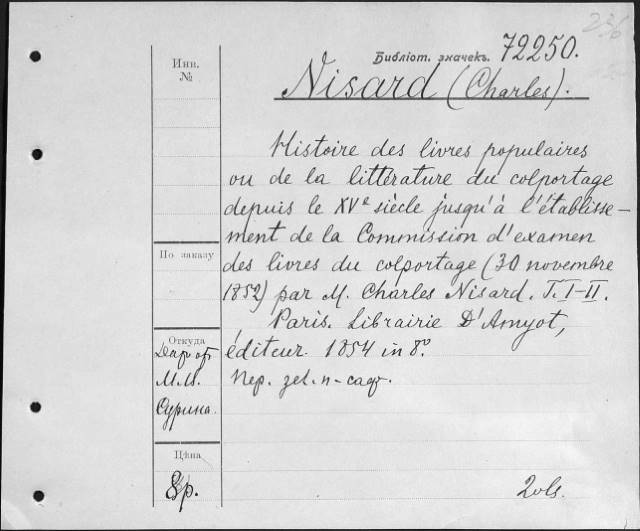 236
Инв.
№
Библіот. значекъ. 72250.
Nisard (Charles).
Histoire des livres populaires
ou de la littérature du colportage
depuis le XVe siècle jusqu'à l'établisse-
ment de la Commission d'examen
По заказу
des livres du colportage (30 novembre
1852) par M. Charles Nisard. T. I-II.
Paris. Librairie D'Amyot,
Откуда
éditeur. 1854 in 8º
Даръ от
М.И.
Сурина.
Цѣна
8р.
2 vls.